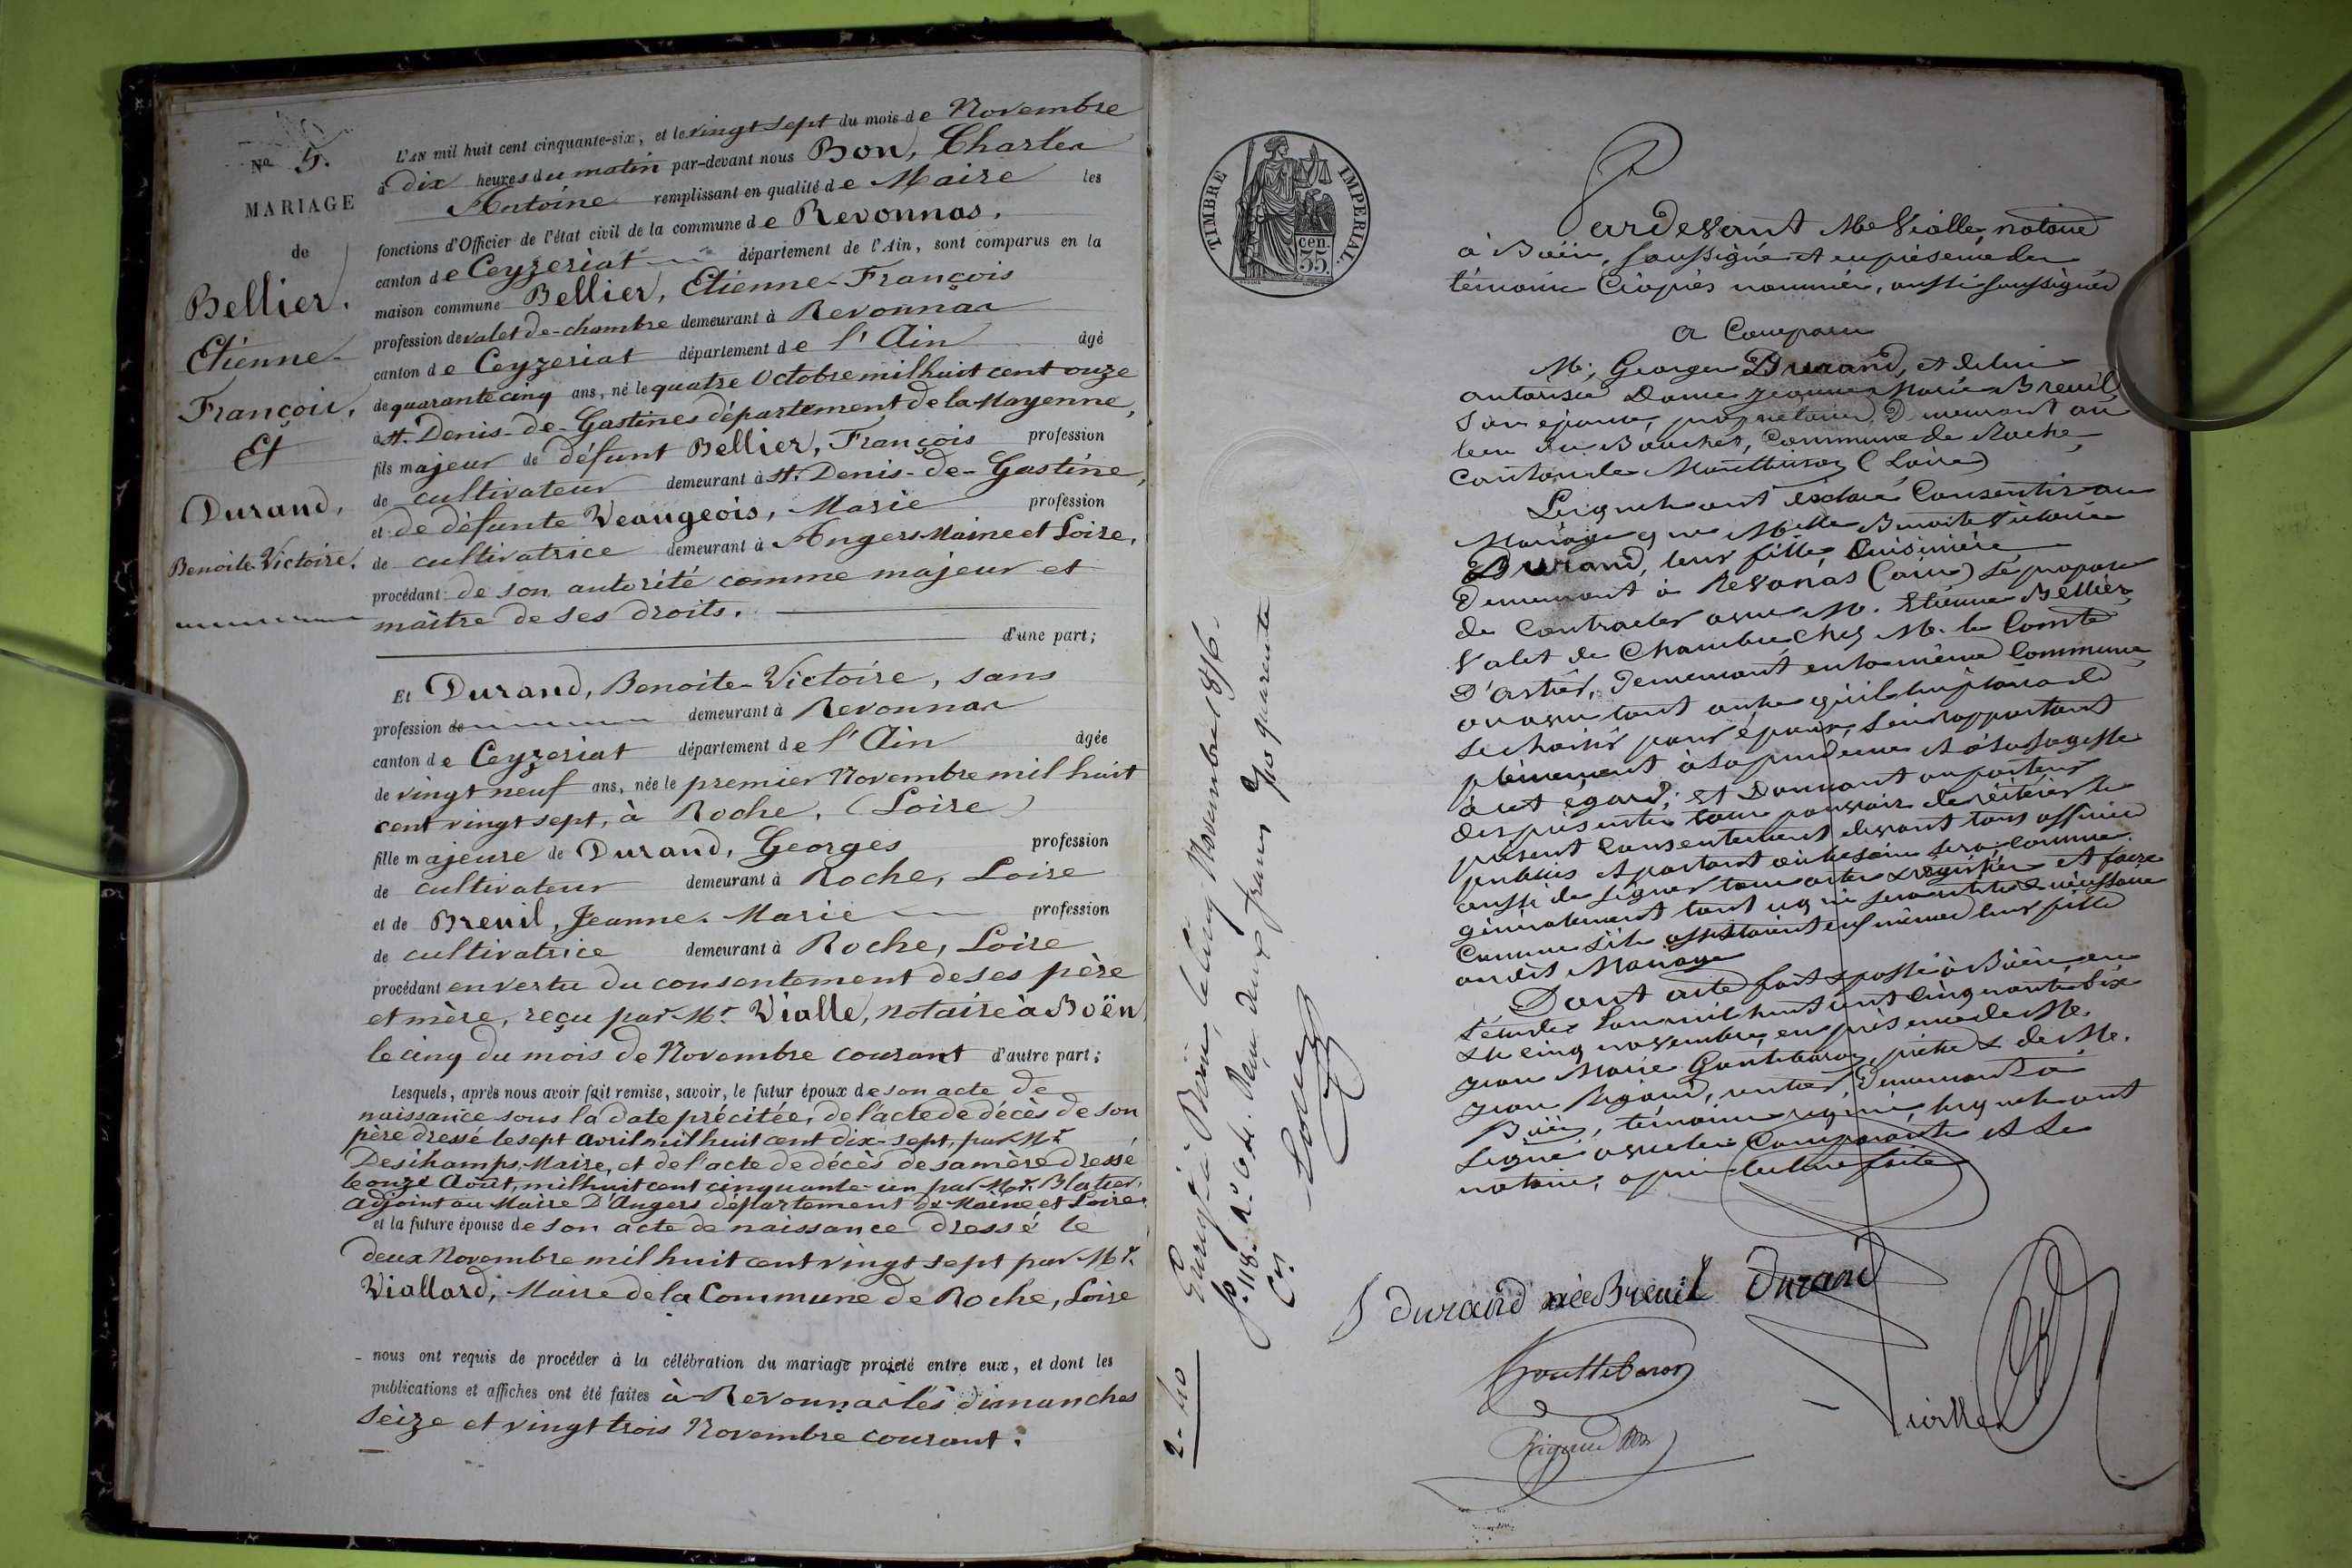 No 5.
MARIAGE
de
Bellier.
Etienne-
François,
Et
Durand,
Benoite-Victoire.
L'AN mil huit cent cinquante-six, et le vingt sept du mois de Novembre
à dix heures du matin par-devant nous Bon, Charles
Antoine remplissant en qualité de Maire les
fonctions d'Officier de l'état civil de la commune de Revonnas.
canton de Ceyzeriat département de l'Ain, sont comparus en la
maison commune Bellier, Etienne-François
profession de valet-de-chambre demeurant à Revonnas
canton de Ceyzeriat département de l'Ain âgé
de quarante cinq ans, né le quatre Octobre mil huit cent onze
à St. Denis-de-Gastines département de la Mayenne,
fils majeur de défunt Bellier, François profession
de cultivateur demeurant à St. Denis-de-Gastine,
et de défunte Veaugeois, Marie profession
de cultivatrice demeurant à Angers Maine et Loire,
procédant de son autorité comme majeur et
maître de ses droits.
d'une part;
Et Durand, Benoite-Victoire, sans
profession de demeurant à Revonnas
canton de Ceyzeriat département de l'Ain âgée
de vingt neuf ans, née le premier Novembre mil huit
cent vingt sept, à Roche, (Loire)
fille majeure de Durand, Georges profession
de cultivateur demeurant à Roche, Loire
et de Breuil, Jeanne-Marie profession
de cultivatrice demeurant à Roche, Loire
procédant en vertu du consentement de ses père
et mère, reçu par Mr. Vialle, notaire à Boën
le cinq du mois de Novembre courant d'autre part;
Lesquels, après nous avoir fait remise, savoir, le futur époux de son acte de
naissance sous la date précitée, de l'acte de décès de son
père dressé le sept avril mil huit cent dix-sept, par Mr.
Deschamps, Maire, et de l'acte de décès de sa mère dressé
le onze Août, mil huit cent cinquante-un par Mr. Blatier,
adjoint au Maire D'Angers département de Maine et Loire.
et la future épouse de son acte de naissance dressé le
deux Novembre mil huit cent vingt sept par Mr.
Viallard, Maire de la Commune de Roche, Loire
nous ont requis de procéder à la célébration du mariage projeté entre eux, et dont les
publications et affiches ont été faites à Revonnas les dimanches
seize et vingt trois Novembre courant.
TIMBRE IMPERIAL.
cen.
35.
Pardevant Me Vialle, notaire
à Boën, soussigné et en présence des
témoins ciaprès nommés, aussi soussignés
a Comparu
Mr. Georges Durand, et de lui
autorisée Dame Jeanne Marie Breuil
son épouse, propriétaires Demeurant au
lieu du Bouchet, Commune de Roche,
canton de Montbrison (Loire)
Lesquels ont déclaré Consentir au
Mariage que Melle Benoite Victoire
Durand, leur fille Cuisinière
Demeurant à Revonas (ain) se propose
de Contracter avec M. Etienne Bellier,
Valet de Chambre chez M. le Comte
D'astier, Demeurant en la même Commune,
ou avec tout autre qu'il lui plaira de
se choisir pour époux, s'en rapportant
pleinement à sa prudence et à sa sagesse
à cet égard; et Donnant au porteur
des présentes tous pouvoirs de réitérer le
présent Consentement devant tous officiers
publics et partout où besoin sera comme
aussi de signer tous actes & registres et faire
généralement tout ce qui sera utile & nécessaire
Comme s'ils assistaient eux mêmes leur fille
audit Mariage
Dont acte fait & passé à Boën en
l'étude L'an mil huit cent Cinquante Six
& le cinq novembre, en présence de Me.
Jean Marie Gouttebaron, & de Me.
Jean Rigaud, rentier, Demeurant à
Boën, témoins requis, lesquels ont
signé avec les Comparants et le
notaire, après lecture faite
J Durand née Breuil Durand
Gouttebaron
Rigaud
Vialle
Enregistré à Boën, le cinq Novembre 1856.
f. 118. Ro. C. 6. Reçu deux francs
2-40